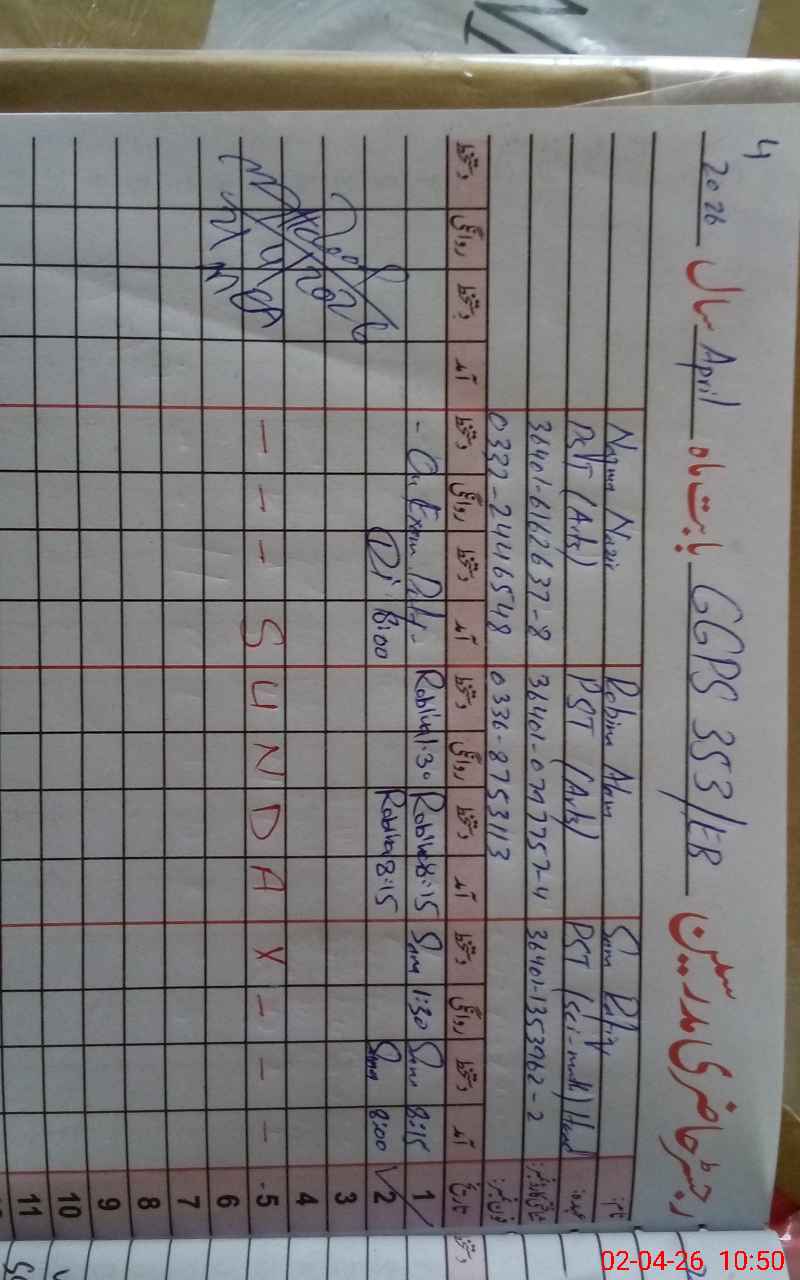 4
رجسٹر حاضری مدرسین سکول GGPS 353/EB بابت ماہ April سال 2026
نام: Sara Rafiq Robina Adam Nazma Nazir
عہدہ: PST (Sci-math) Head PST (Arts) PST (Arts)
شناختی کارڈ نمبر: 36401-1353962-2 36401-0797757-4 36401-6162637-8
فون نمبر: 0336-8753113 0332-2446548
تاریخ آمد دستخط روانگی دستخط آمد دستخط روانگی دستخط آمد دستخط روانگی دستخط آمد دستخط روانگی دستخط
1 8:15 Sara 1:30 Sara 8:15 Robina 1:30 Robina - On Exam Duty -
2 8:00 Sara 8:15 Robina 8:00
3
4
5 - - - S U N D A Y - - -
6
7
8
9
10
11
02-04-26 10:50